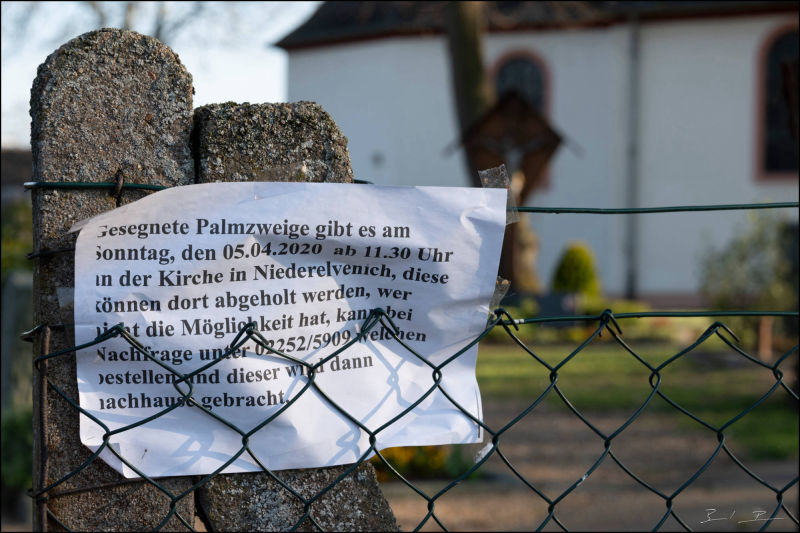 Gesegnete Palmzweige gibt es am
Sonntag, den 05.04.2020 ab 11.30 Uhr
in der Kirche in Niederelvenich, diese
können dort abgeholt werden, wer
nicht die Möglichkeit hat, kann bei
Nachfrage unter 02252/5909 welchen
bestellen und dieser wird dann
nachhause gebracht.